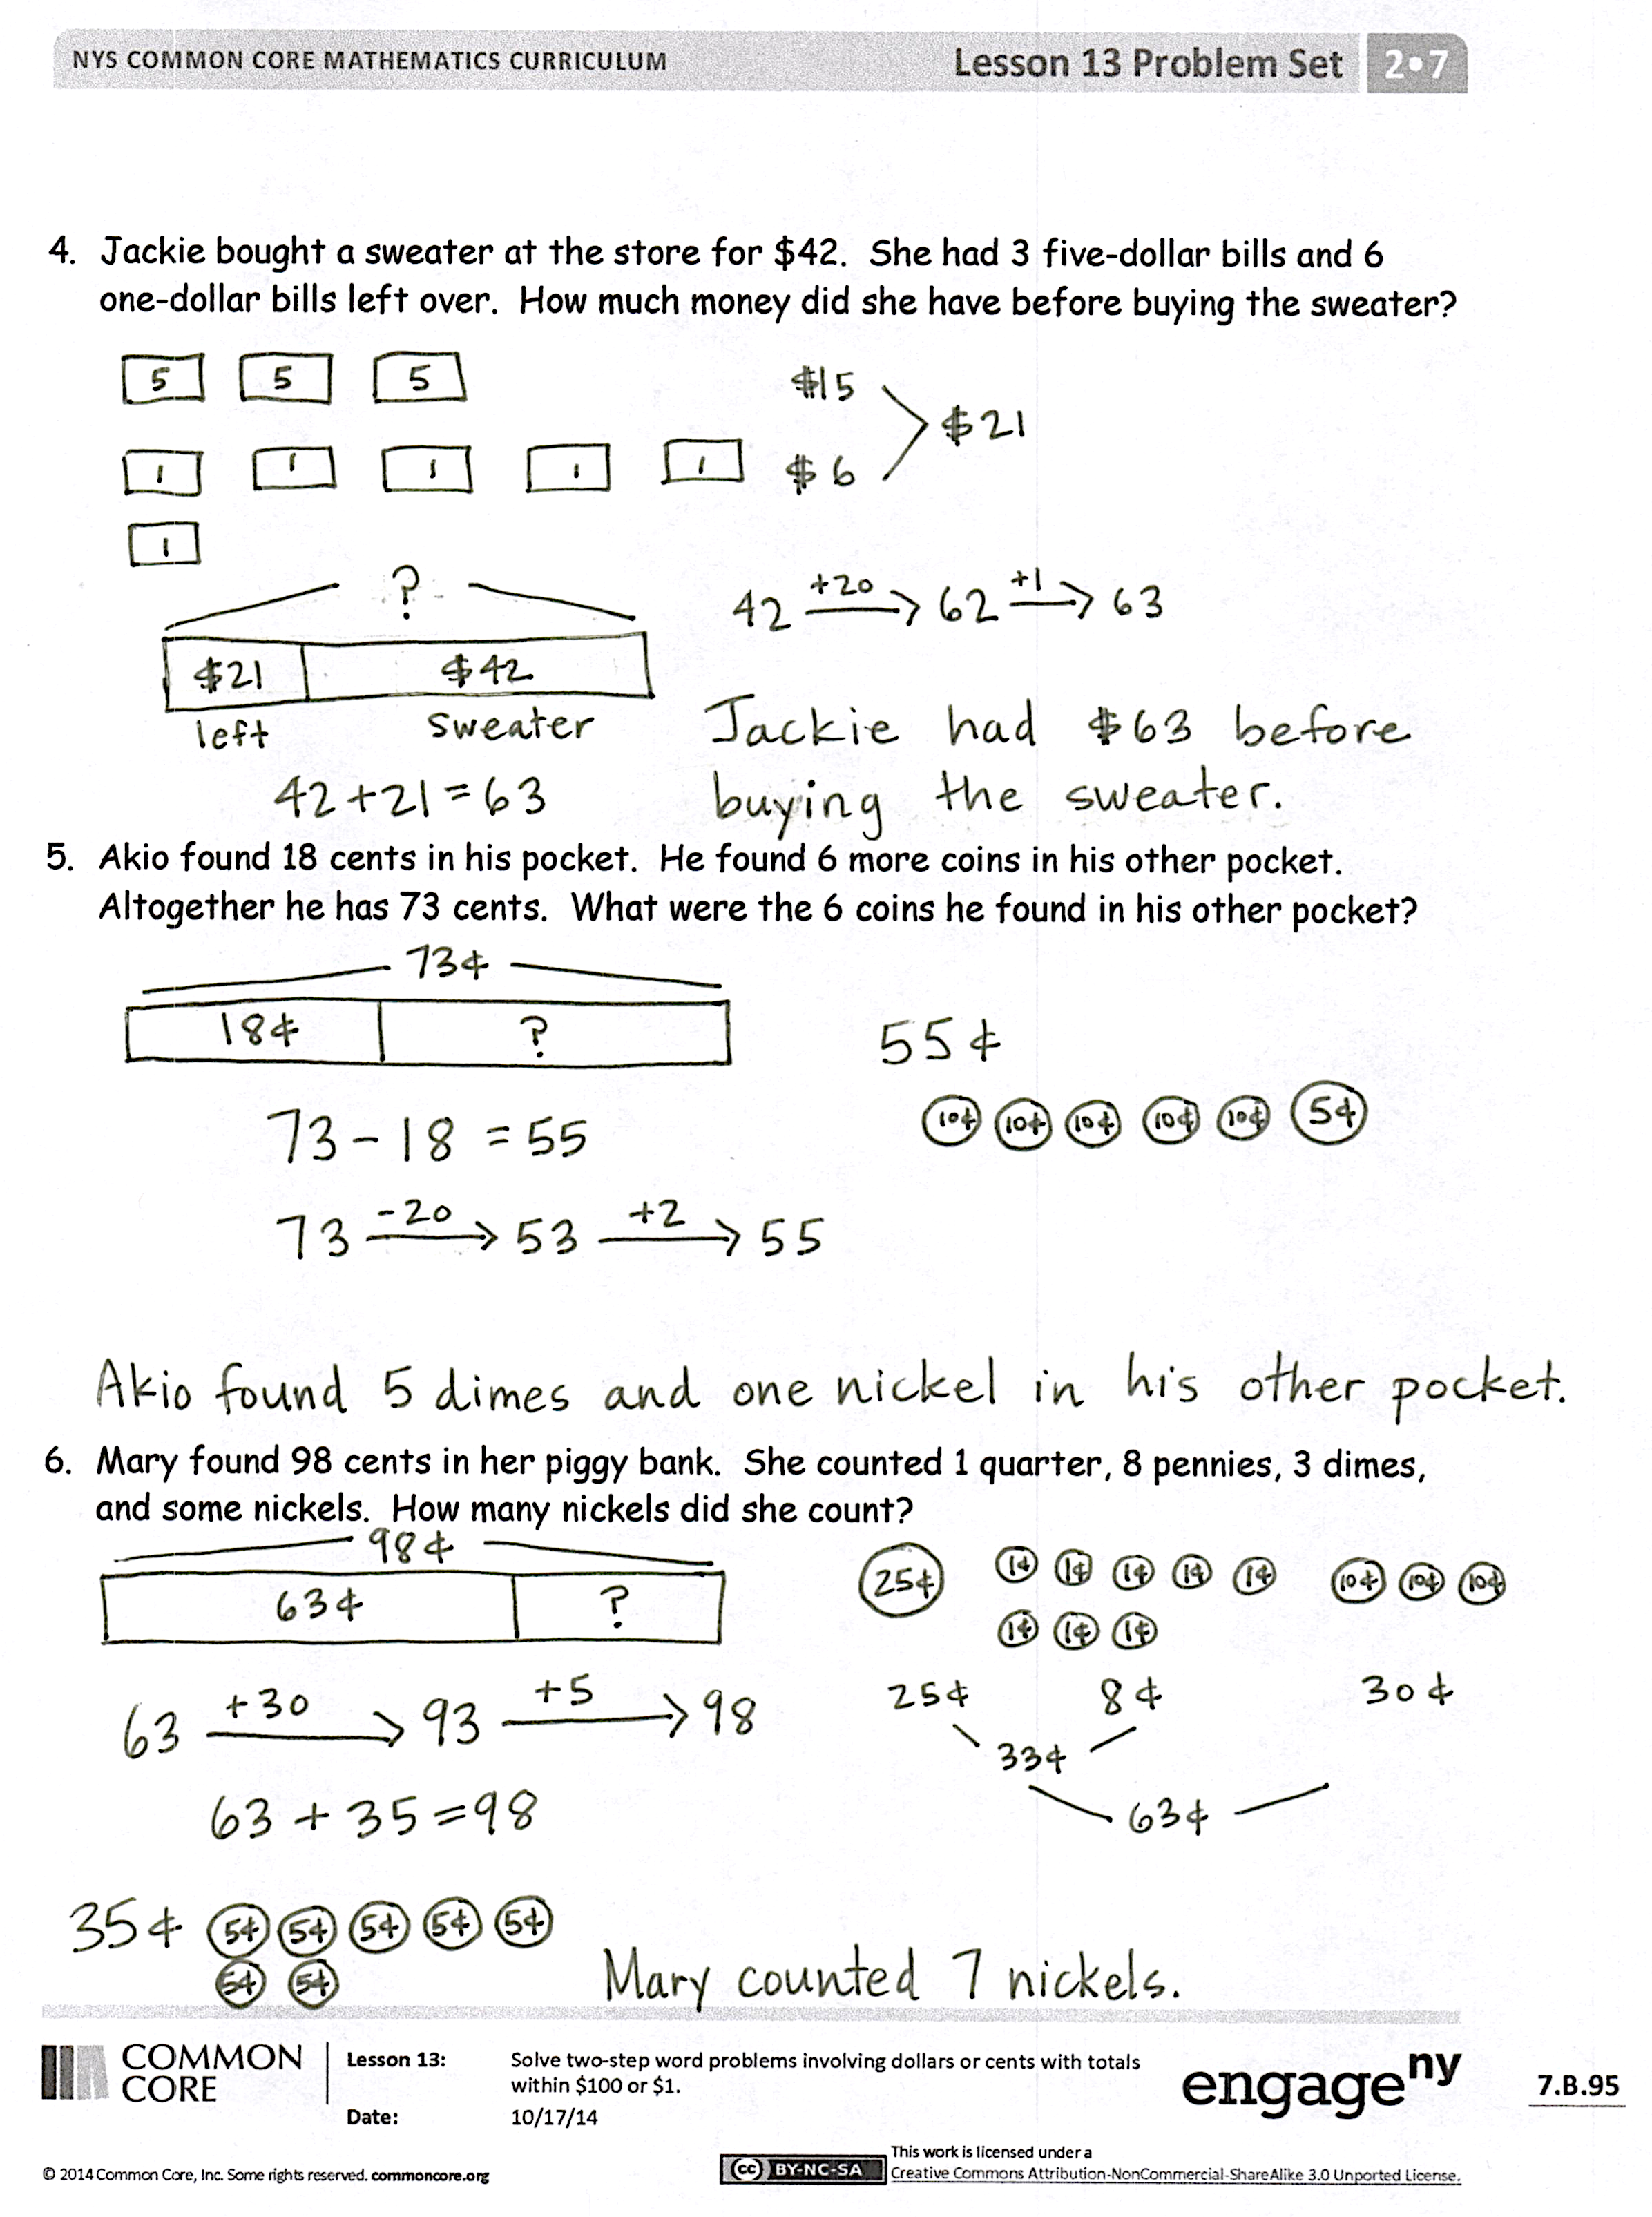 NYS COMMON CORE MATHEMATICS CURRICULUM
Lesson 13 Problem Set 2•7
4. Jackie bought a sweater at the store for $42. She had 3 five-dollar bills and 6
one-dollar bills left over. How much money did she have before buying the sweater?
5 5 5
$15
$21
1 1 1 1 1
$6
1
?
42 +20 62 +1 63
$21 $42
left sweater
42+21=63
Jackie had $63 before
buying the sweater.
5. Akio found 18 cents in his pocket. He found 6 more coins in his other pocket.
Altogether he has 73 cents. What were the 6 coins he found in his other pocket?
73¢
18¢ ?
55¢
10¢ 10¢ 10¢ 10¢ 10¢ 5¢
73-18 =55
73 -20 53 +2 55
Akio found 5 dimes and one nickel in his other pocket.
6. Mary found 98 cents in her piggy bank. She counted 1 quarter, 8 pennies, 3 dimes,
and some nickels. How many nickels did she count?
98¢
63¢ ?
25¢ 1¢ 1¢ 1¢ 1¢ 1¢ 10¢ 10¢ 10¢
1¢ 1¢ 1¢
25¢ 8¢ 30¢
33¢
63¢
63 +30 93 +5 98
63 + 35 =98
35¢ 5¢ 5¢ 5¢ 5¢ 5¢
5¢ 5¢
Mary counted 7 nickels.
COMMON
CORE
Lesson 13: Solve two-step word problems involving dollars or cents with totals
within $100 or $1.
Date: 10/17/14
engage ny
7.B.95
© 2014 Common Core, Inc. Some rights reserved. commoncore.org
cc BY-NC-SA
This work is licensed under a
Creative Commons Attribution-NonCommercial-ShareAlike 3.0 Unported License.